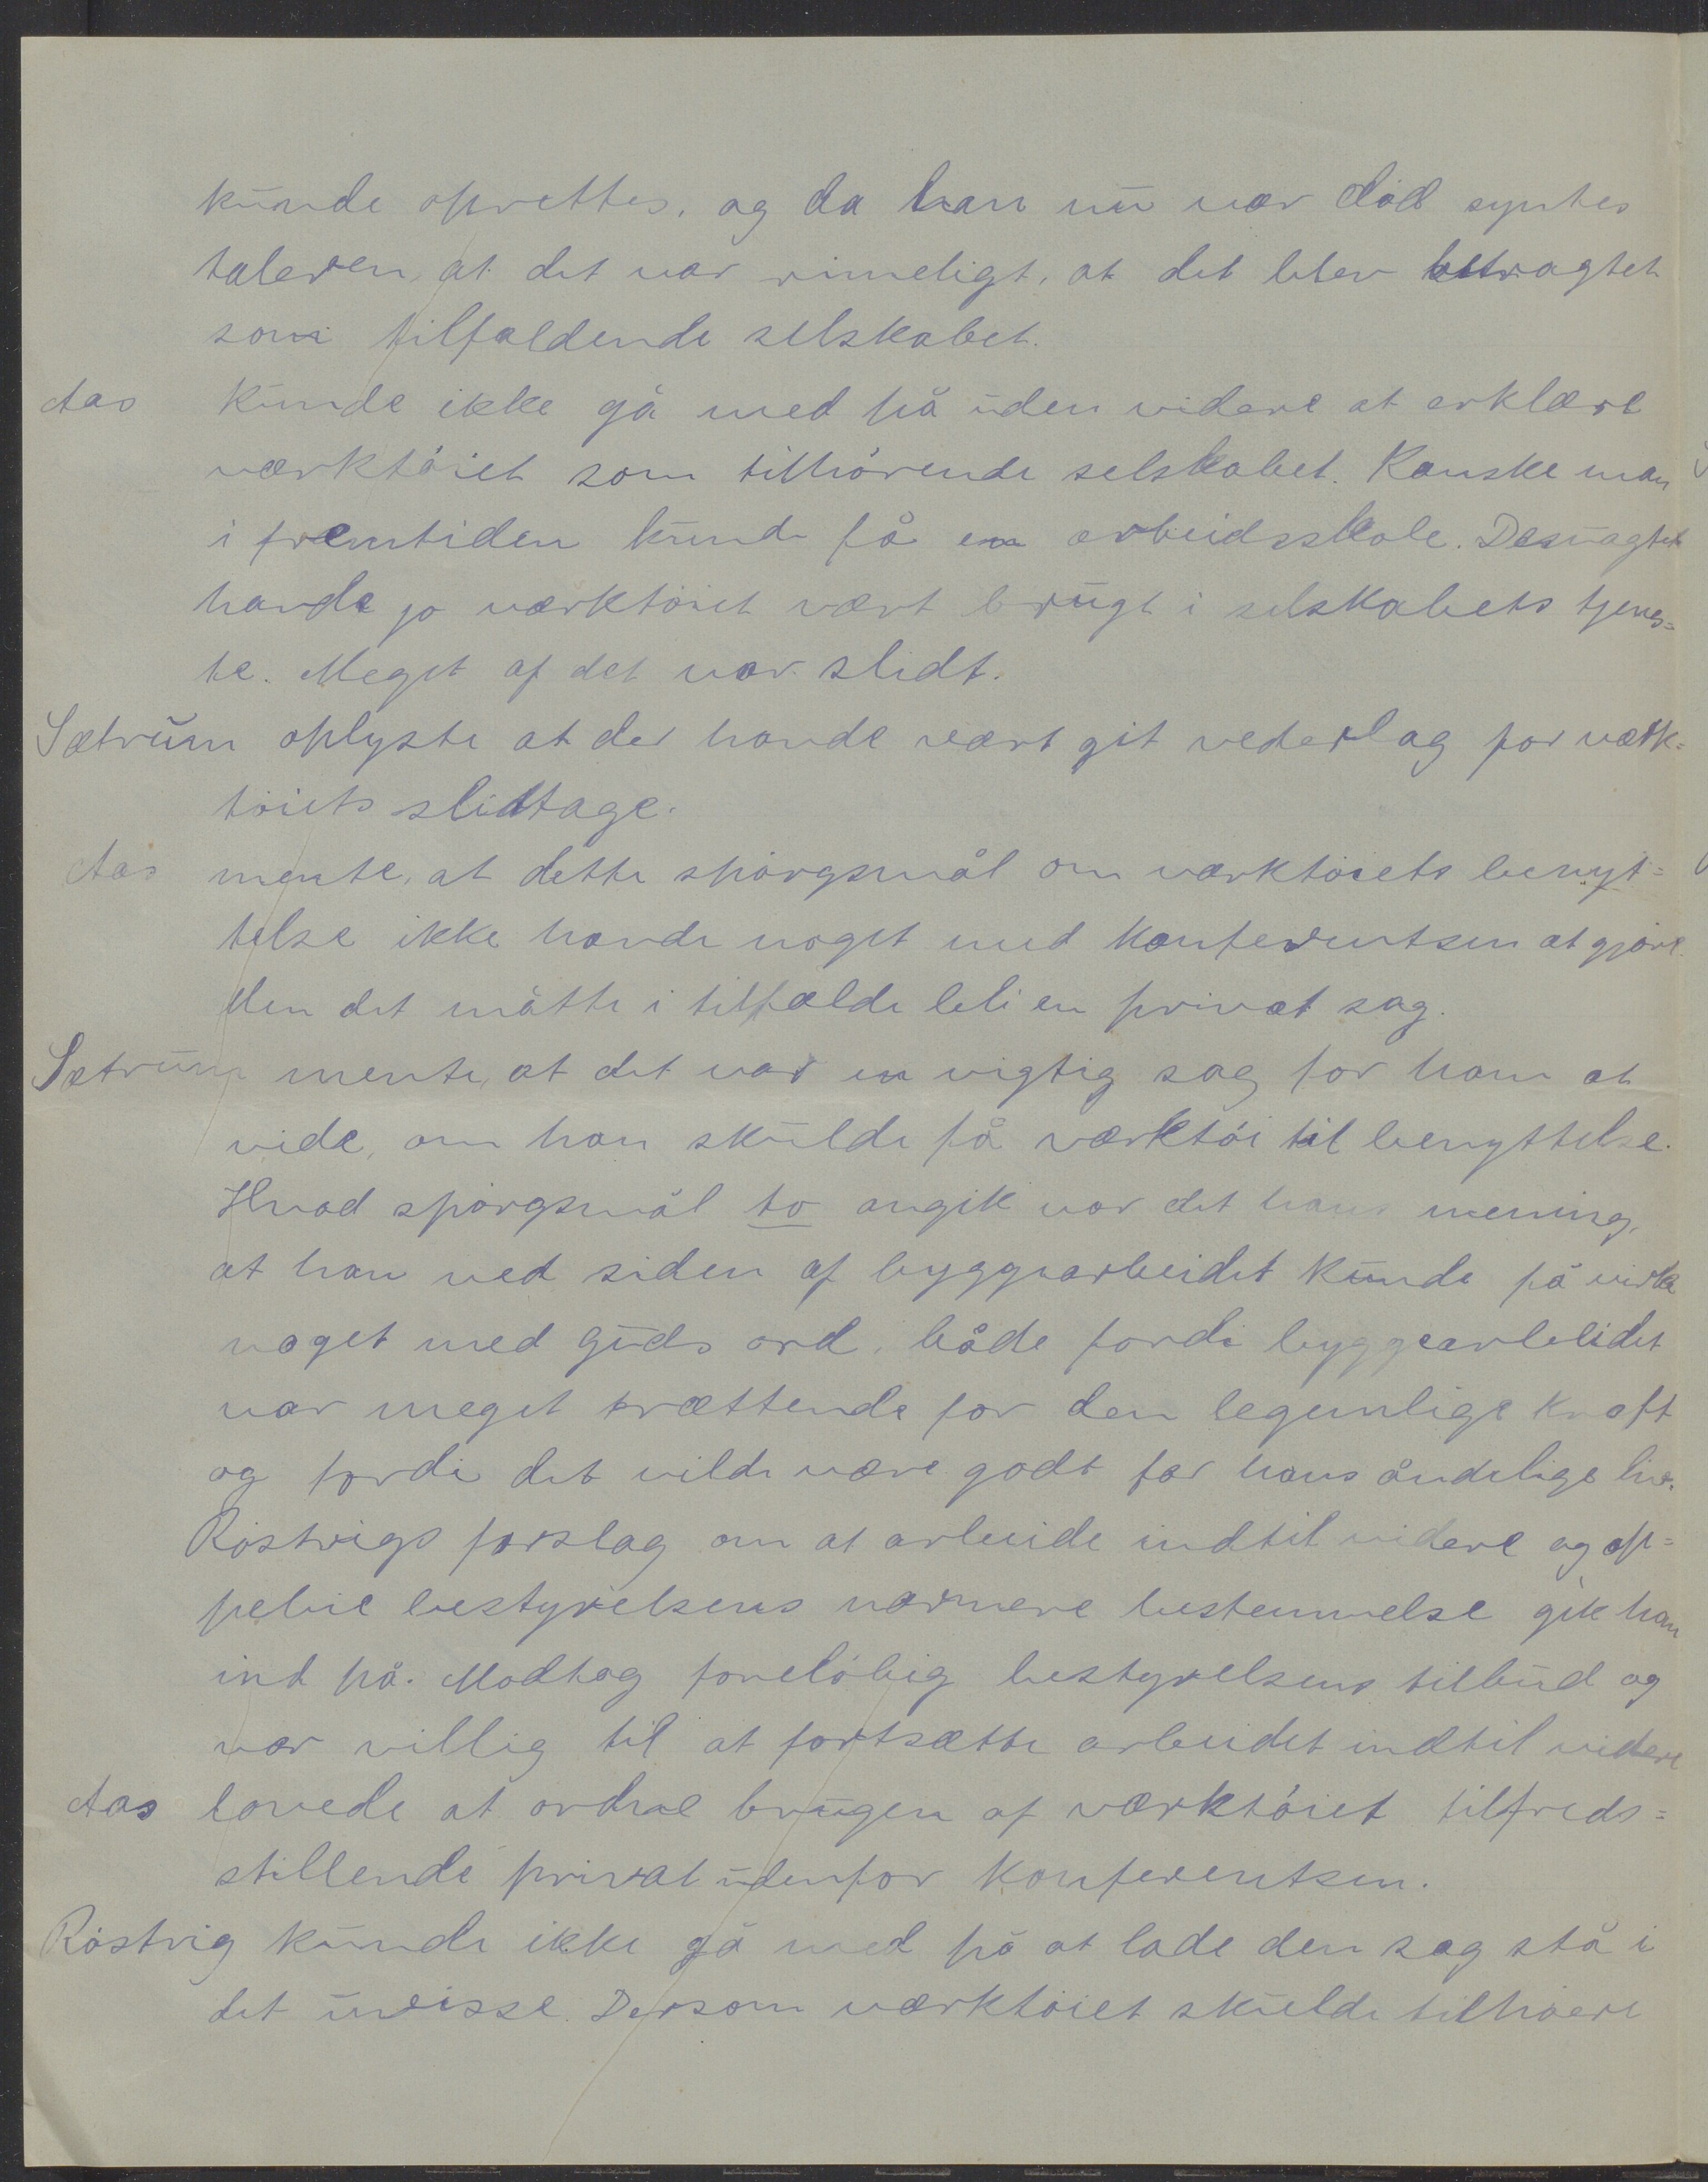 kunde oprettes, og da han nu var död syntes
taleren, at det var rimeligt, at det blev betragtet
som tilfaldende selskabet.
Aas kunde ikke gå med på uden videre at erklære
værktöiet som tilhörende selskabet. Kanske man
i fremtiden kunde få en arbeidsskole. Desuagtet
havde jo værktöiet vært brugt i selskabets tjenes=
te. Meget af det var slidt.
Sætrum oplyste at der havde vært git vederlag for værk=
töiets slidtage.
Aas mente, at dette spörgsmål om værktöiets benyt=
telse ikke havde noget med konferentsen at gjöre.
Men det måtte i tilfælde bli en privat sag.
Sætrum mente, at det var en vigtig sag for ham at
vide, om han skulde få værktöi til benyttelse.
Hvad spörgsmål to angik var det hans mening,
at han ved siden af byggearbeidet kunde få virke
noget med Guds ord, både fordi byggearbeidet
var meget trættende for den legemlige kraft
og fordi det vilde være godt for hans åndelige liv.
Röstvigs forslag om at arbeide indtil videre og op=
pebie bestyrelsens nærmere bestemmelse gik han
ind på. Modtog forelöbig bestyrelsens tilbud og
var villig til at fortsætte arbeidet indtil videre
Aas lovede at ordne brugen af værktöiet tilfreds=
stillende privat udenfor konferentsen.
Röstvig kunde ikke gå med på at lade den sag stå i
det uvisse. Dersom værktöiet skulde tilhöere